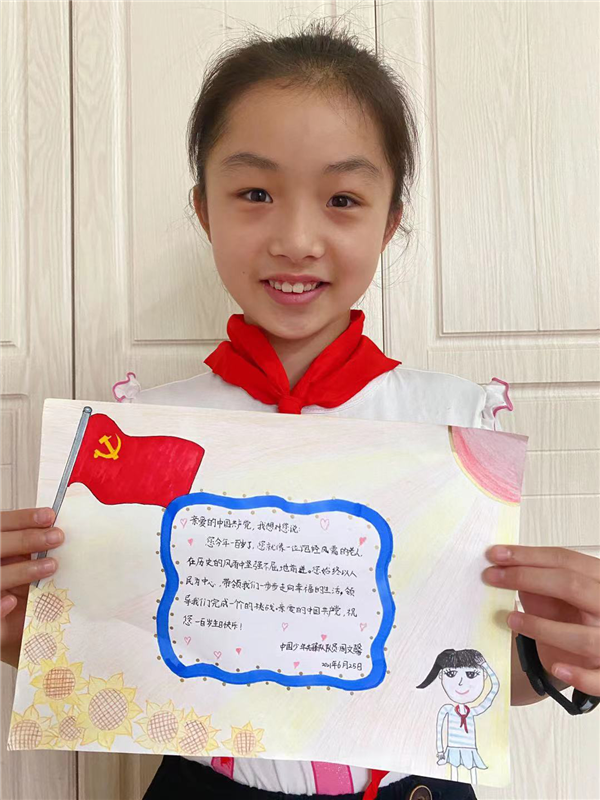 亲爱的中国共产党，我想对您说：
您今年一百岁了，您就像一位饱经风霜的老人，
在历史的风雨中坚强不屈地前进。您始终以人
民为中心，带领我们一步步走向幸福的生活，领
导我们完成一个个的挑战。亲爱的中国共产党，祝
您一百岁生日快乐！
中国少年先锋队队员 周文馨
2021年6月25日